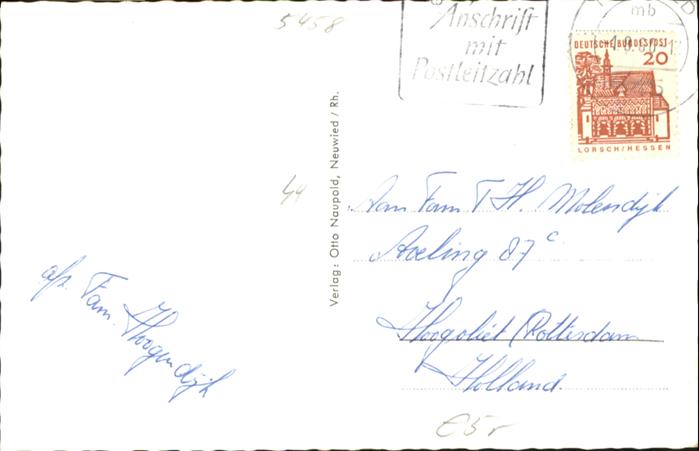 5458
Anschrift
mit
Postleitzahl
mb
DEUTSCHE BUNDESPOST
20
LORSCH/HESSEN
Verlag: Otto Naupold, Neuwied / Rh.
44
Aan Fam T H. Molendijk
Aveling 87c
Hoogvliet (Rotterdam
Holland.
afz. Fam. Hoogendijk